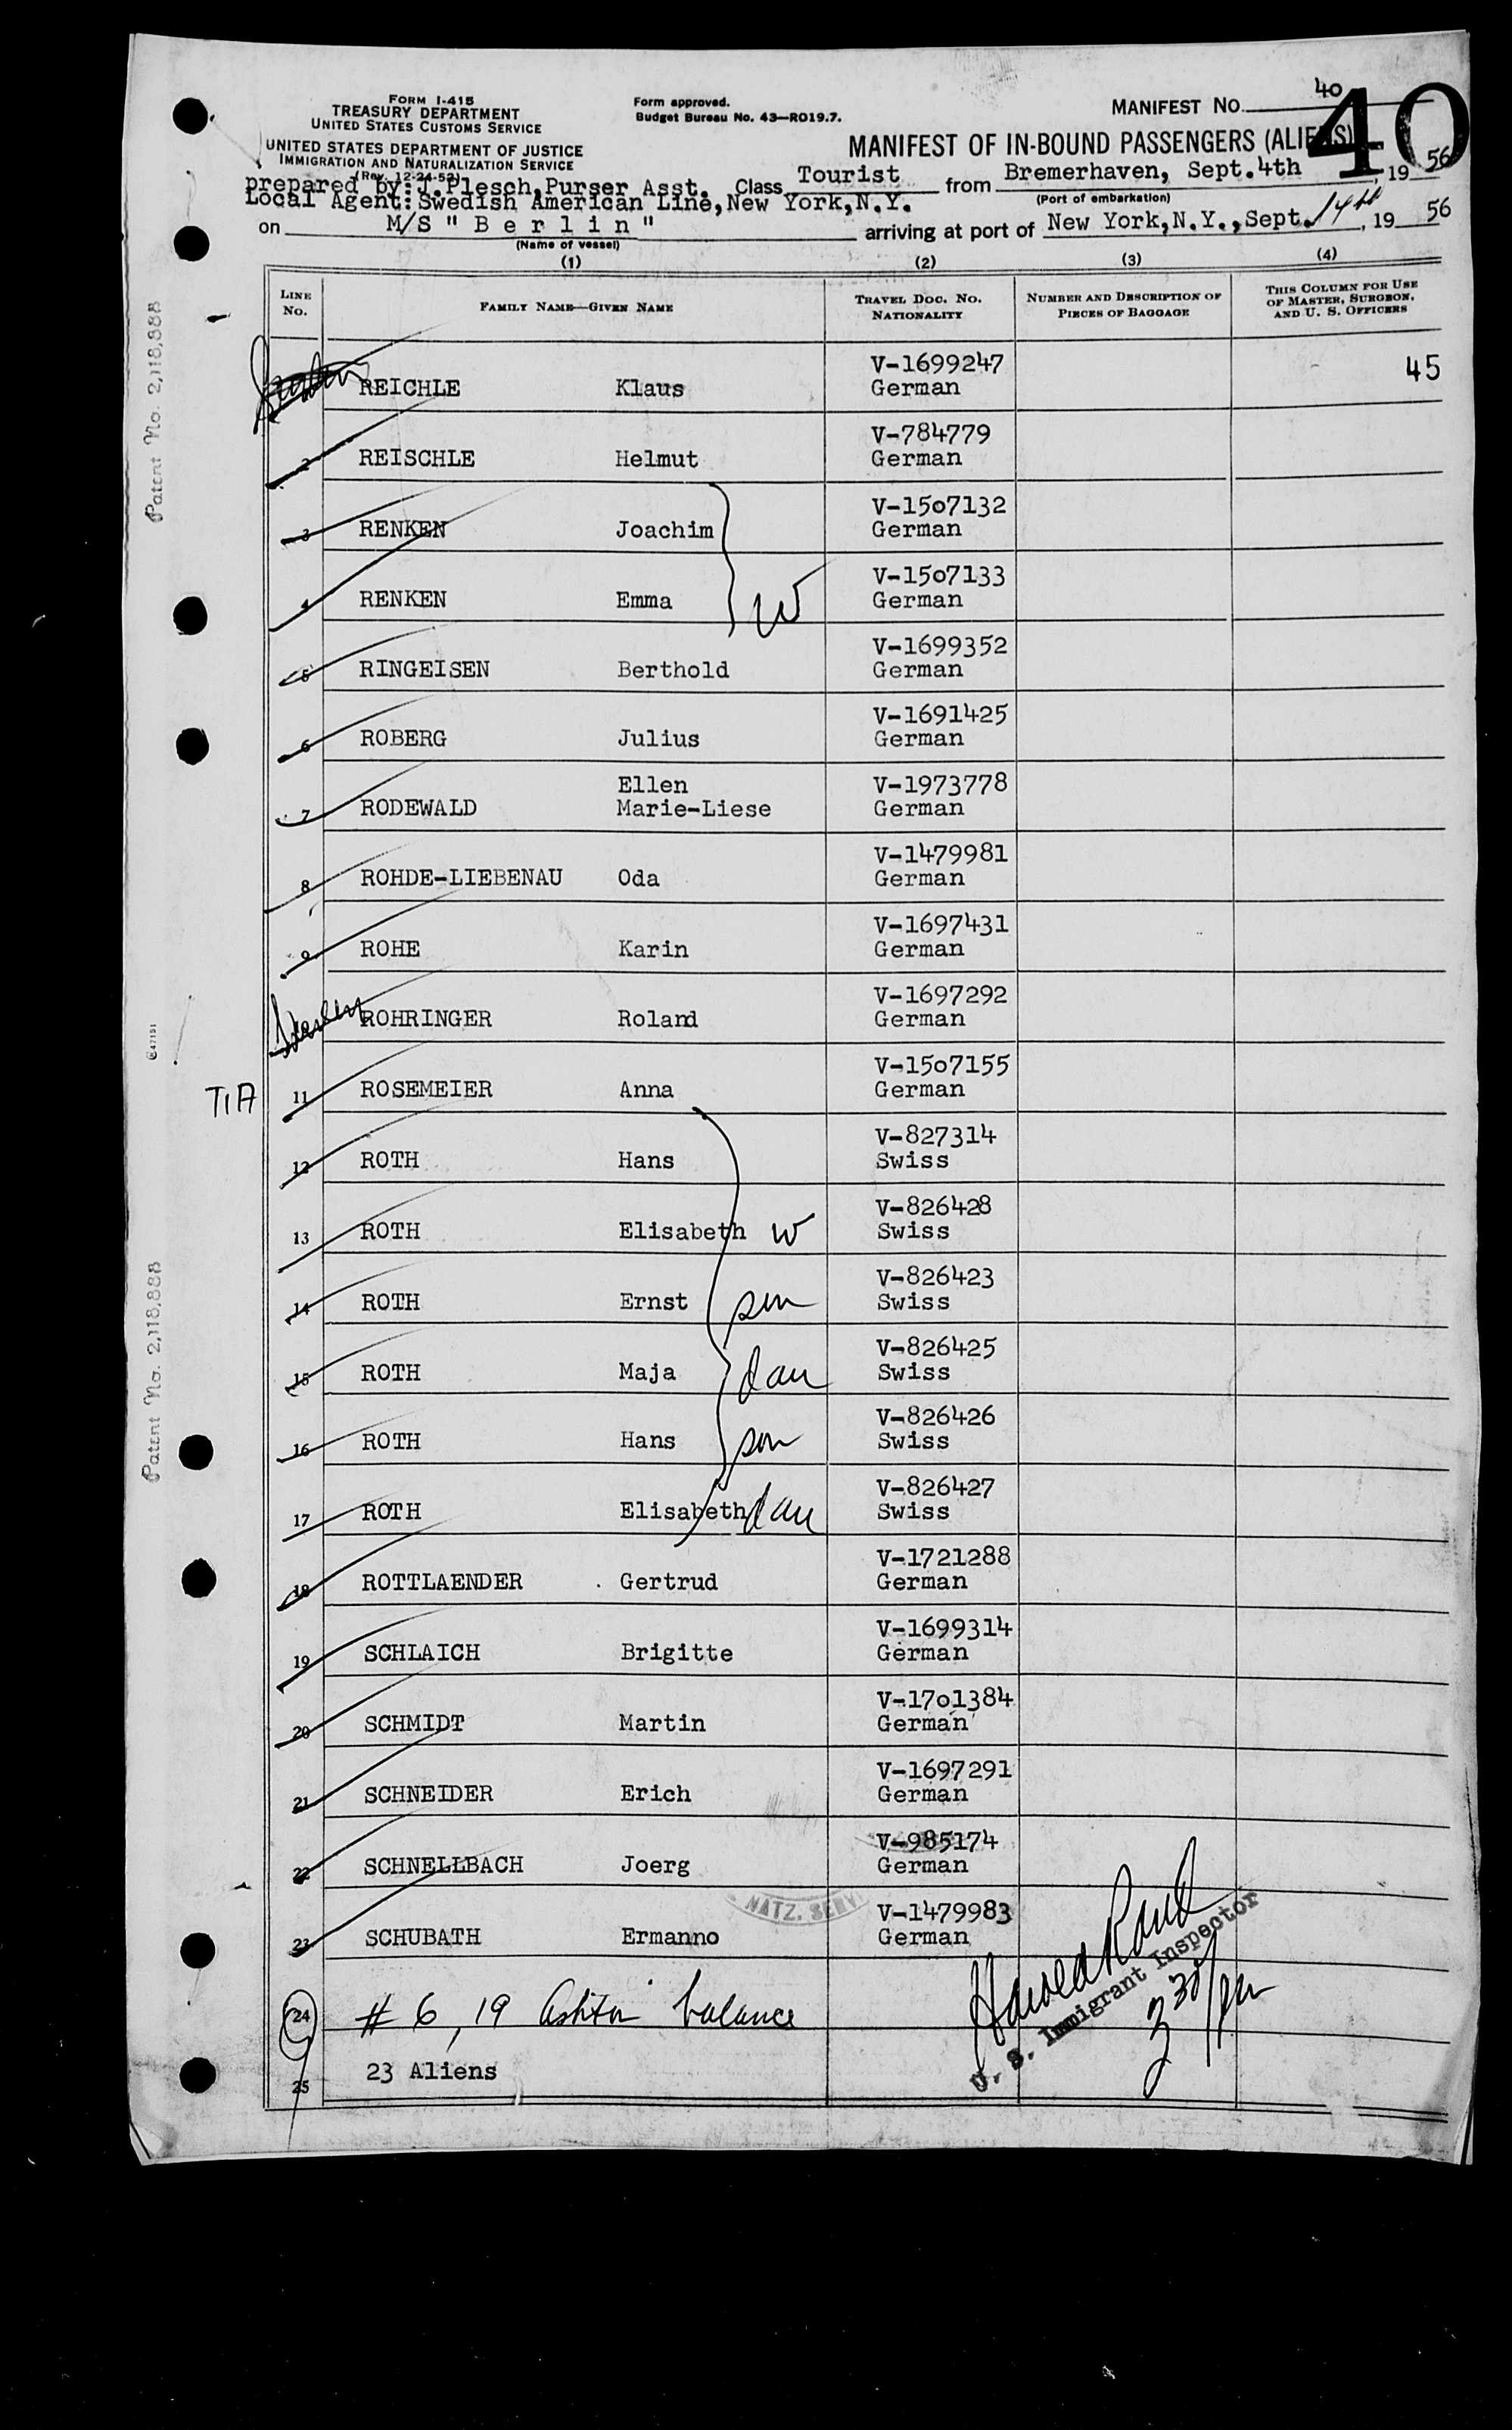 FORM I-415
TREASURY DEPARTMENT
UNITED STATES CUSTOMS SERVICE
UNITED STATES DEPARTMENT OF JUSTICE
IMMIGRATION AND NATURALIZATION SERVICE
(Rev. 12-24-52)
Form approved.
Budget Bureau No. 43—RO19.7.
MANIFEST NO. 40
40
MANIFEST OF IN-BOUND PASSENGERS (ALIENS)
prepared by: J.Plesch,Purser Asst. Class Tourist from Bremerhaven, Sept.4th, 19 56
(Port of embarkation)
Local Agent: Swedish American Line,New York,N.Y.
on M/S " B e r l i n " arriving at port of New York,N.Y.,Sept. 14th, 19 56
(Name of vessel)
(1) (2) (3) (4)
LINE NO. FAMILY NAME—GIVEN NAME TRAVEL DOC. NO. NATIONALITY NUMBER AND DESCRIPTION OF PIECES OF BAGGAGE THIS COLUMN FOR USE OF MASTER, SURGEON, AND U. S. OFFICERS
V-1699247 45
REICHLE Klaus German
V-784779
2 REISCHLE Helmut German
V-1507132
3 RENKEN Joachim German
V-1507133
4 RENKEN Emma W German
V-1699352
5 RINGEISEN Berthold German
V-1691425
6 ROBERG Julius German
Ellen V-1973778
7 RODEWALD Marie-Liese German
V-1479981
8 ROHDE-LIEBENAU Oda German
V-1697431
9 ROHE Karin German
V-1697292
ROHRINGER Roland German
V-1507155
TIA 11 ROSEMEIER Anna German
V-827314
12 ROTH Hans Swiss
V-826428
13 ROTH Elisabeth W Swiss
V-826423
14 ROTH Ernst son Swiss
V-826425
15 ROTH Maja dau Swiss
V-826426
16 ROTH Hans son Swiss
V-826427
17 ROTH Elisabeth dau Swiss
V-1721288
18 ROTTLAENDER Gertrud German
V-1699314
19 SCHLAICH Brigitte German
V-1701384
20 SCHMIDT Martin German
V-1697291
21 SCHNEIDER Erich German
V-985174
22 SCHNELLBACH Joerg German
NATZ. SERV
V-1479983
23 SCHUBATH Ermanno German
24 # 6, 19 balance
25 23 Aliens
U. S. Immigrant Inspector
Patent No. 2,118,888
C47151
Patent No. 2,118,888